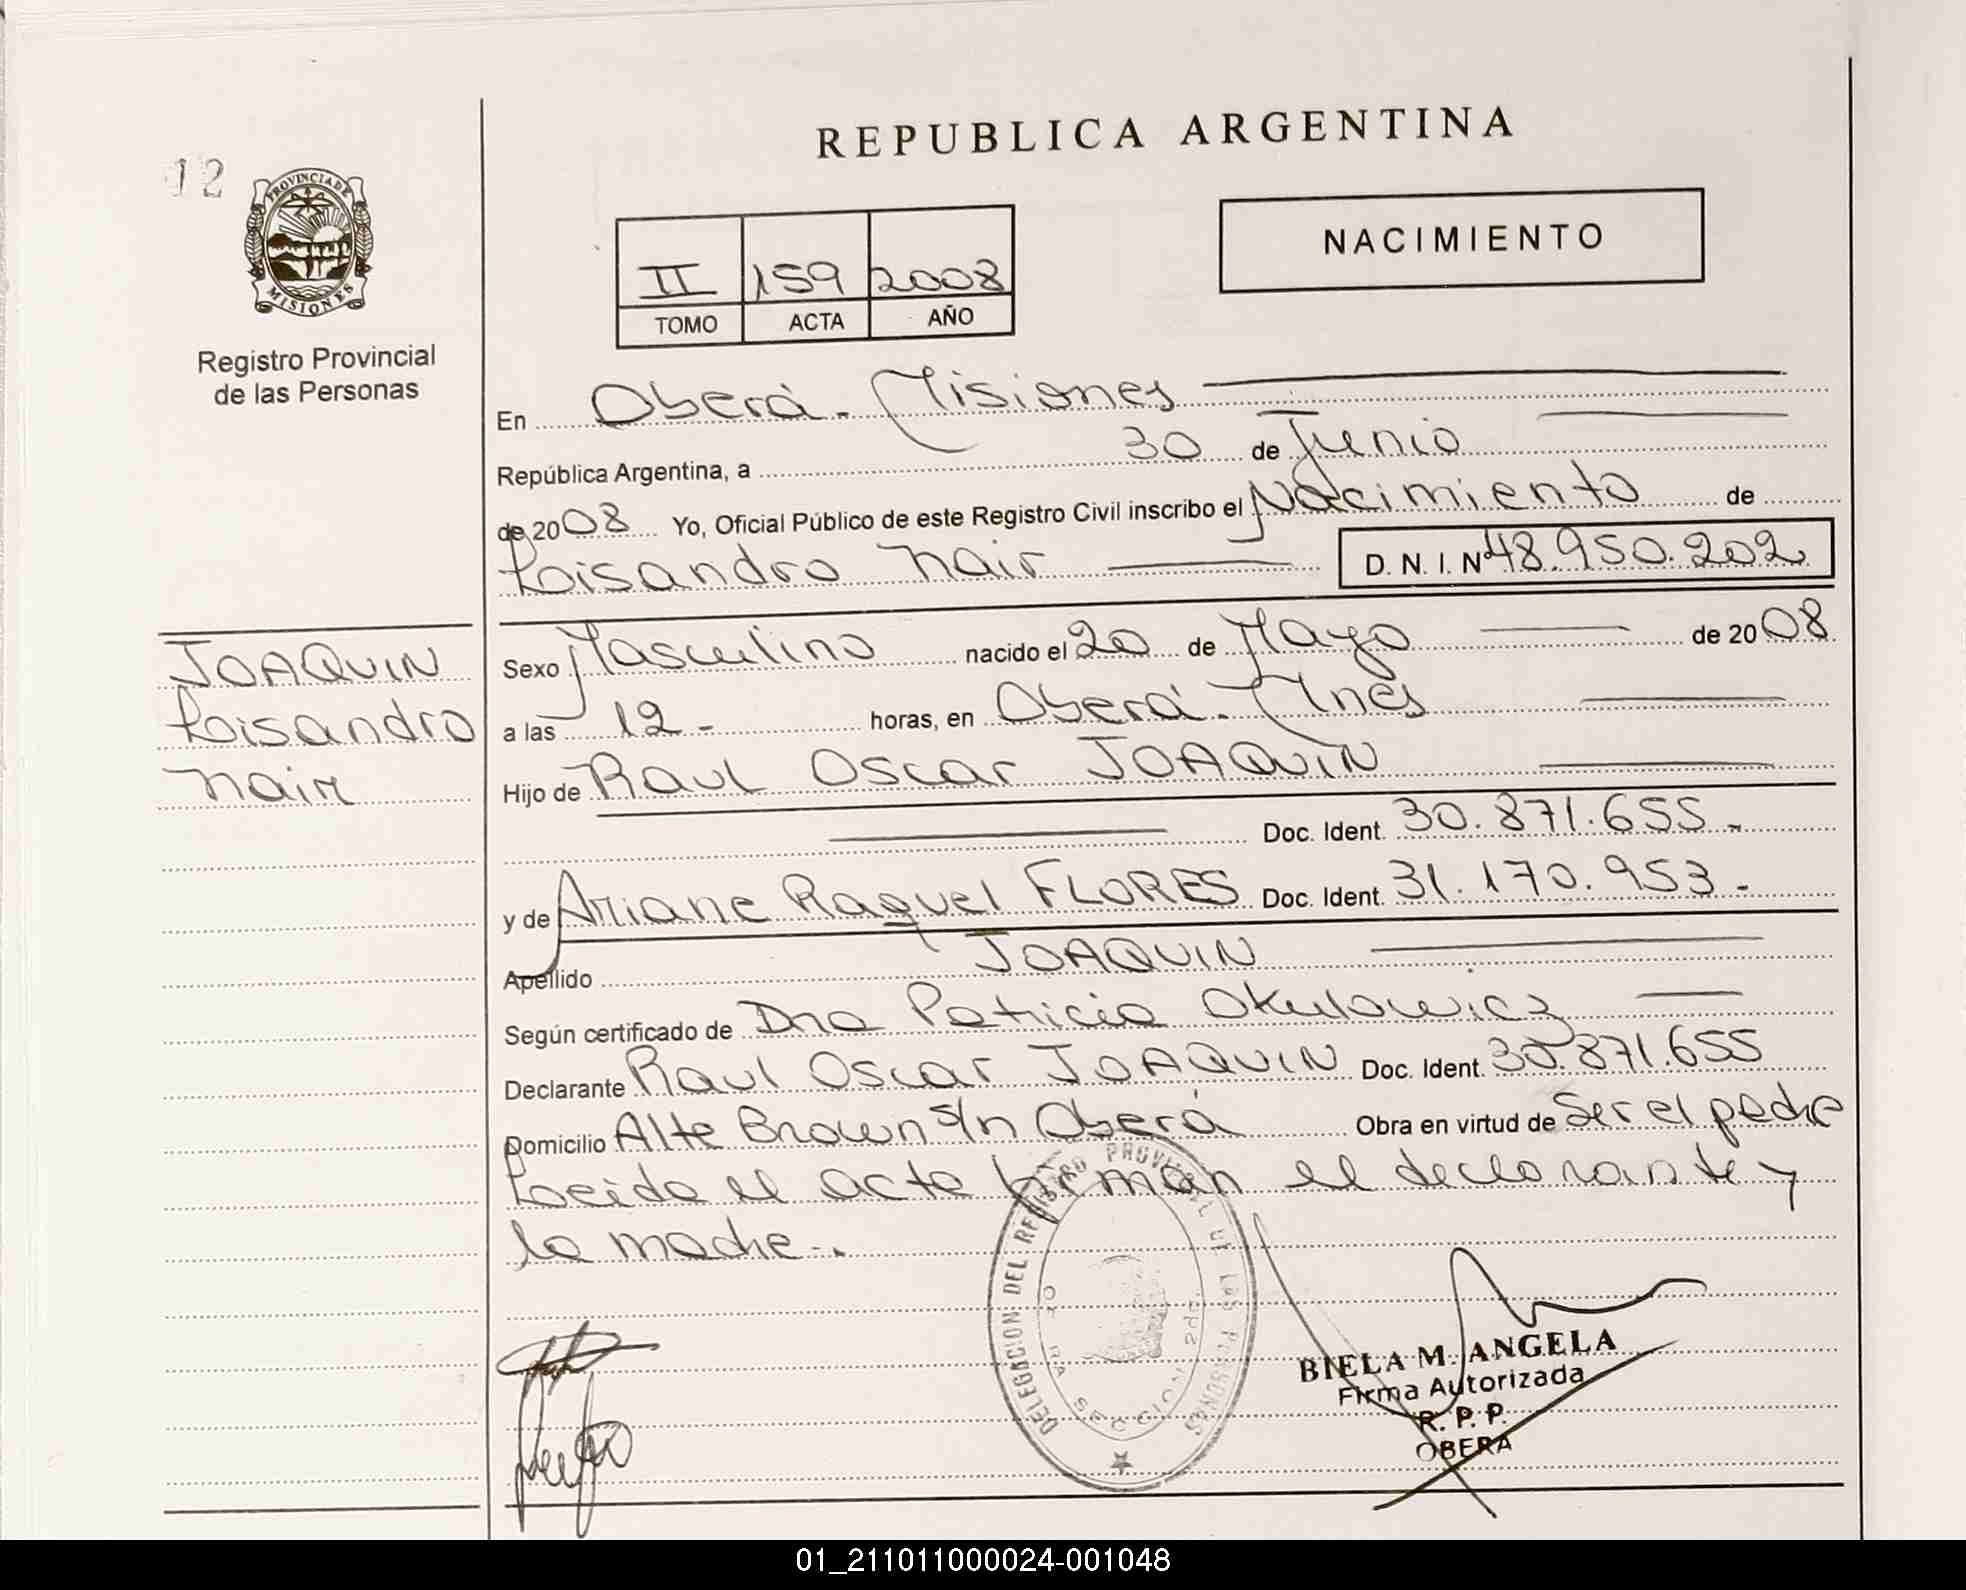 REPUBLICA ARGENTINA
12
PROVINCIA DE
MISIONES
Registro Provincial
de las Personas
NACIMIENTO
II 159 2008
TOMO ACTA AÑO
En Oberá. Misiones
República Argentina, a 30 de Junio
de 2008 Yo, Oficial Público de este Registro Civil inscribo el Nacimiento de
Loisandro Nair D. N. I. Nº 48.950.202
JOAQUIN
Loisandro
Nair
Sexo Masculino nacido el 20 de Mayo de 2008
a las 12- horas, en Oberá. Mnes
Hijo de Raul Oscar JOAQUIN
Doc. Ident. 30.871.655.-
y de Ariane Raquel FLORES Doc. Ident. 31.170.953.-
Apellido JOAQUIN
Según certificado de Dra Patricia Okulowicz
Declarante Raul Oscar JOAQUIN Doc. Ident. 30.871.655
Domicilio Alte Brown s/n Oberá Obra en virtud de Ser el padre
Leida el acta firman el declarante y
la madre-.
DELEGACION DEL REGISTRO PROVINCIAL DE LAS PERSONAS
SECCION 2da.
BIELA M. ANGELA
Firma Autorizada
R. P. P.
OBERA
01_211011000024-001048